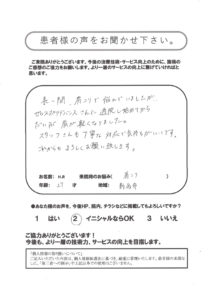 患者様の声をお聞かせ下さい。
ご来院いただきありがとうございます。今後の治療技術・サービスの向上のために、施術の
ご感想やご協力をお願いします。より一層のサービスの向上に繋げていければと
思います。
長い間 肩こりで悩んでいましたが
に通院し始めてから
だいぶ肩が軽くなりました。
スタッフさんも丁寧な対応で気持ちがいいです。
これからもよろしくお願い致します。
お名前
来院時のお悩み( 肩こり )
年齢 27 才
地域
●あなた様のお声を、今後HP、院内、チラシなどに掲載してもよろしいですか?
1 はい 2 イニシャルならOK 3 いいえ
ご協力ありがとうございます!
今後も、より一層の技術力、サービスの向上を目指します。